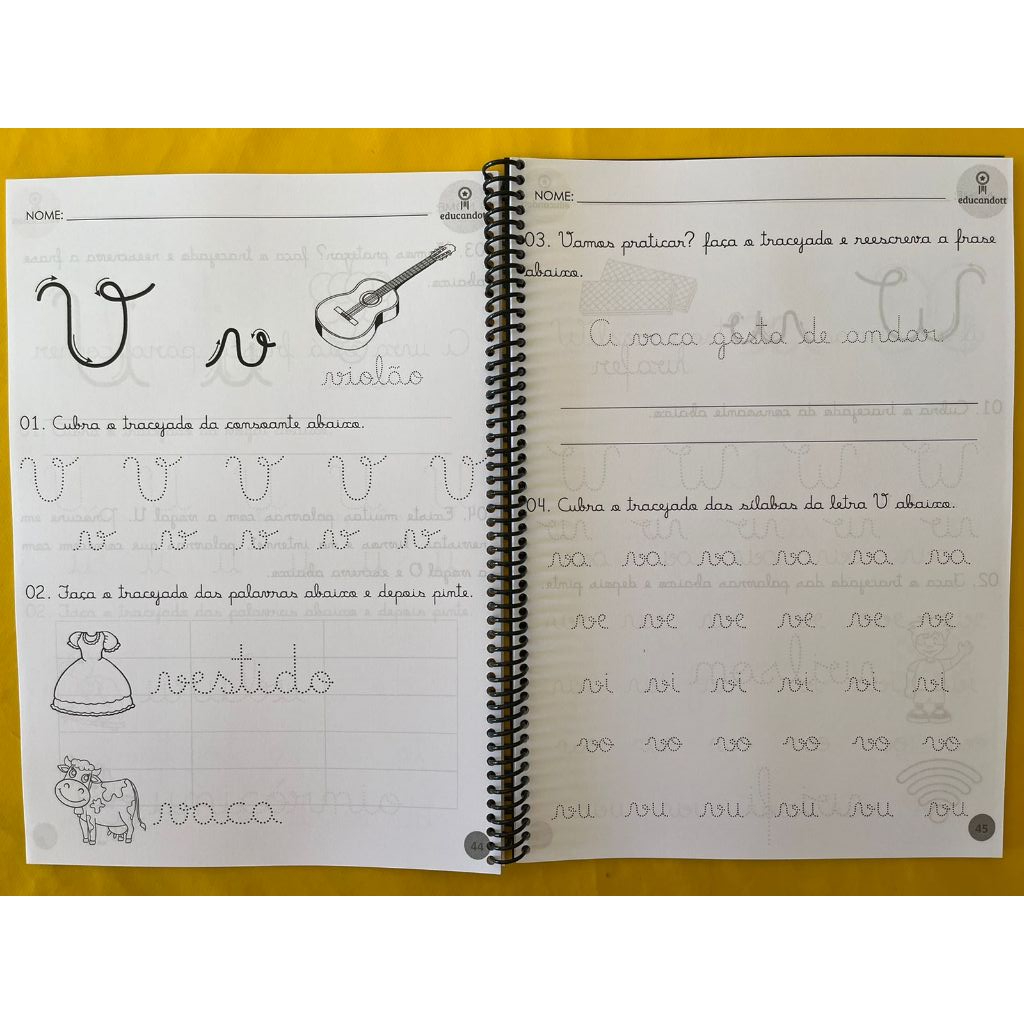 NOME:
educandott
V v
violão
01. Cubra o tracejado da consoante abaixo.
V V V V V
v v v v v
02. Faça o tracejado das palavras abaixo e depois pinte.
vestido
vaca
44
NOME:
educandott
03. Vamos praticar? faça o tracejado e reescreva a frase
abaixo.
A vaca gosta de andar
04. Cubra o tracejado das sílabas da letra V abaixo.
va va va va va va
ve ve ve ve ve ve
vi vi vi vi vi vi
vo vo vo vo vo vo
vu vu vu vu vu vu
45